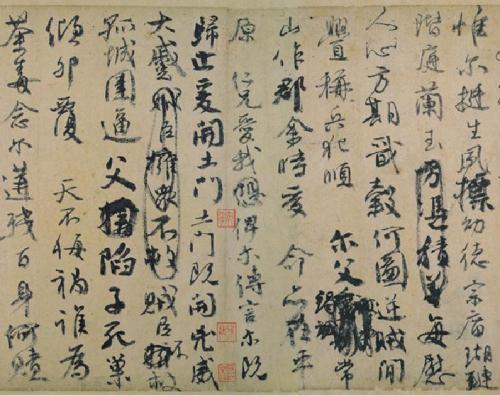 惟尔挺生夙標幼德宗廟瑚璉
階庭蘭玉方憑積善每慰
人心方期戩穀何圖逆賊間
舋稱兵犯順 尔父竭誠常
山作郡余時受 命亦在平
原 仁兄愛我俾尔傳言尔既
歸止爰開土門土門既開凶威
大蹙賊臣擁衆不救賊臣不救
孤城圍逼父陷子死巢
傾卵覆 天不悔禍誰為
荼毒念尔遘殘百身何贖